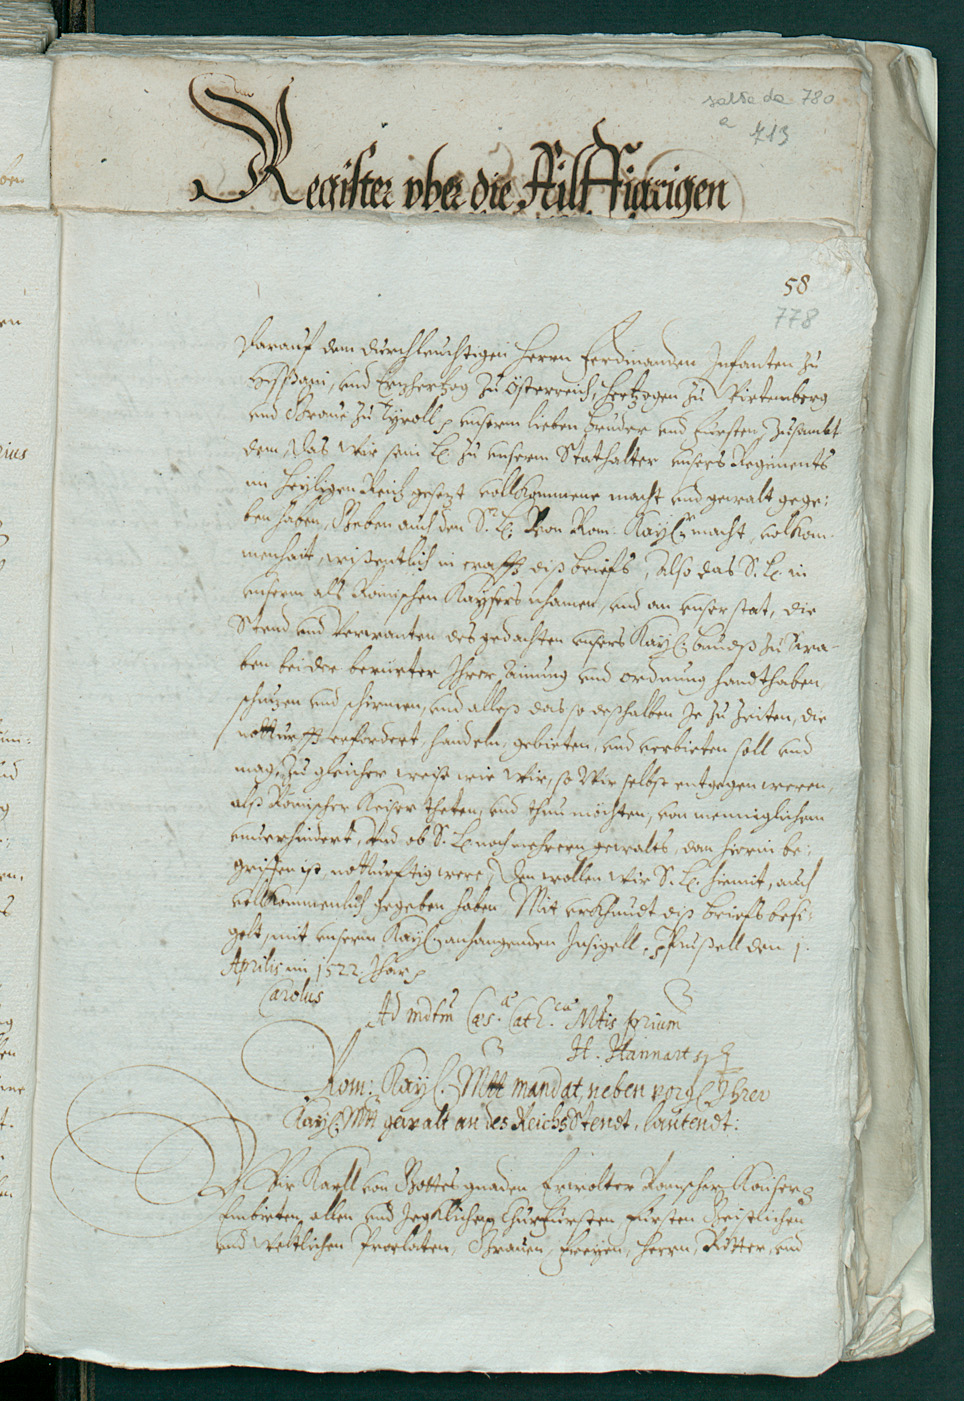 salta da 780
a 713
Register vber die Ailf Jiarigen
58
778
Darauf dem durchleuchtigen Herrn Ferdinanden Infanten zu
Hispani, vnd Ertzhertzog zu Österreich, Hertzogen zu Wirtemberg
vnd Graue zu Tyroll p vnserm lieben Bruder vnd Fürsten, zusambt
dem, das wir sein L. zu vnserm Stathalter vnsers Regiments
im Heyligen Reich gesezt vollkommene macht vnd gewalt gege:
ben haben, Geben auch den S.r L. Von Rom. Kay.r macht, volkom-
menhait, wissentlich in crafft diß briefs, Also das S. L. in
vnserm als Römischen Kaysers nhamen, vnd an vnser stat, die
Stend vnd verwanten des gedachten vnsers Kay. bundß zu Swa-
ben bei der berürter Ihrer Ainung vnd ordnung handthaben,
schutzen vnd schirmen, vnd alleß das so deßhalben Je zu Zeiten, die
notturfft erfordert, handeln, gebieten, vnd verbieten soll vnd
mag, zu gleicher weiß wie Wir, so Wir selbst entgegen weren,
alß Römischer Keiser theten, vnd thun möchten, von menniglichem
vnuerhindert, Vnd ob S. L. noch mehrern gewalts, dan hierin be:
griffen ist, notturfftig were, Den wollen wir S. L. hiemit, auch
volkommenlich gegeben haben. Mit vrkhundt diß briefs besi:
gelt, mit vnserm Kay. anhangenden Insigell, Prussell den 1.
Aprilis im 1522. Jhar p
Carolus
Ad mdtm Cæs. Cath. Mtis prium
H. Hannart
Rom: Kay. Mtt mandat, neben vorg. Ihrer
Kay. Mtt gewalt an des Reichs Stendt, lautendt:
Wir Karll von Gottes gnaden Erwölter Römischer Kaiser p
Embieten allen vnd Jegklichen Churfürsten, Fürsten Geistlichen
vnd Weltlichen Prælaten, Grauen, Freyen, Herrn, Ritter, vnd